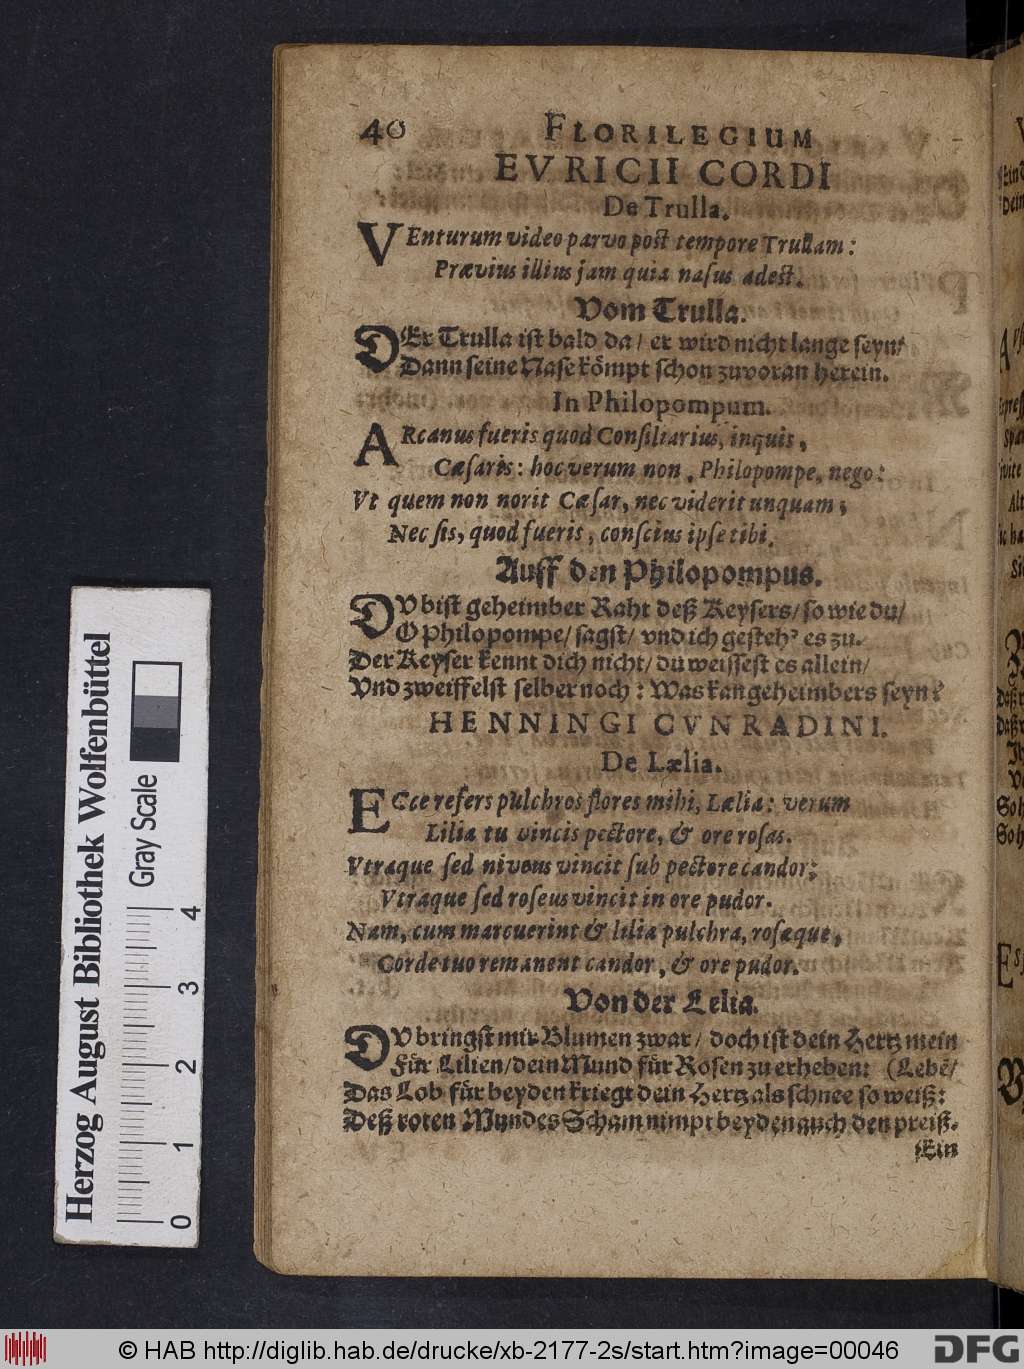 40 FLORILEGIUM
EVRICII CORDI
De Trulla.
VEnturum video parvo poſt tempore Trullam:
Prævius illius jam quia naſus adeſt.
Vom Trulla.
DEr Trulla iſt bald da/ er wird nicht lange ſeyn/
Dann ſeine Naſe koͤmpt ſchon zuvoran herein.
In Philopompum.
ARcanus fueris quod Conſiliarius, inquis,
Cæſaris: hoc verum non, Philopompe, nego:
Vt quem non norit Cæſar, nec viderit unquam;
Nec ſis, quod fueris, conſcius ipſe tibi.
Auff den Philopompus.
DV biſt geheimber Raht deß Keyſers/ ſo wie du/
O Philopompe/ ſagſt/ vnd ich geſteh' es zu.
Der Keyſer kennt dich nicht/ du weiſſeſt es allein/
Vnd zweiffelſt ſelber noch: Was kan geheimbers ſeyn?
HENNINGI CVNRADINI.
De Lælia.
ECce refers pulchros flores mihi, Lælia: verum
Lilia tu vincis pectore, & ore roſas.
Vtraque ſed niveus vincit ſub pectore candor;
Vtraque ſed roſeus vincit in ore pudor.
Nam, cum marcuerint & lilia pulchra, roſæque,
Corde tuo remanent candor, & ore pudor.
Von der Lelia.
DV bringſt mir Blumen zwar/ doch iſt dein Hertz mein
Fuͤr Lilien/ dein Mund fuͤr Roſen zu erheben: (Lebẽ/
Das Lob fuͤr beyden kriegt dein Hertz als ſchnee ſo weiß:
Deß roten Mundes Scham nimpt beyden auch den preiß.
Ein
Herzog August Bibliothek Wolfenbüttel
Gray Scale
0 1 2 3 4
© HAB http://diglib.hab.de/drucke/xb-2177-2s/start.htm?image=00046
DFG